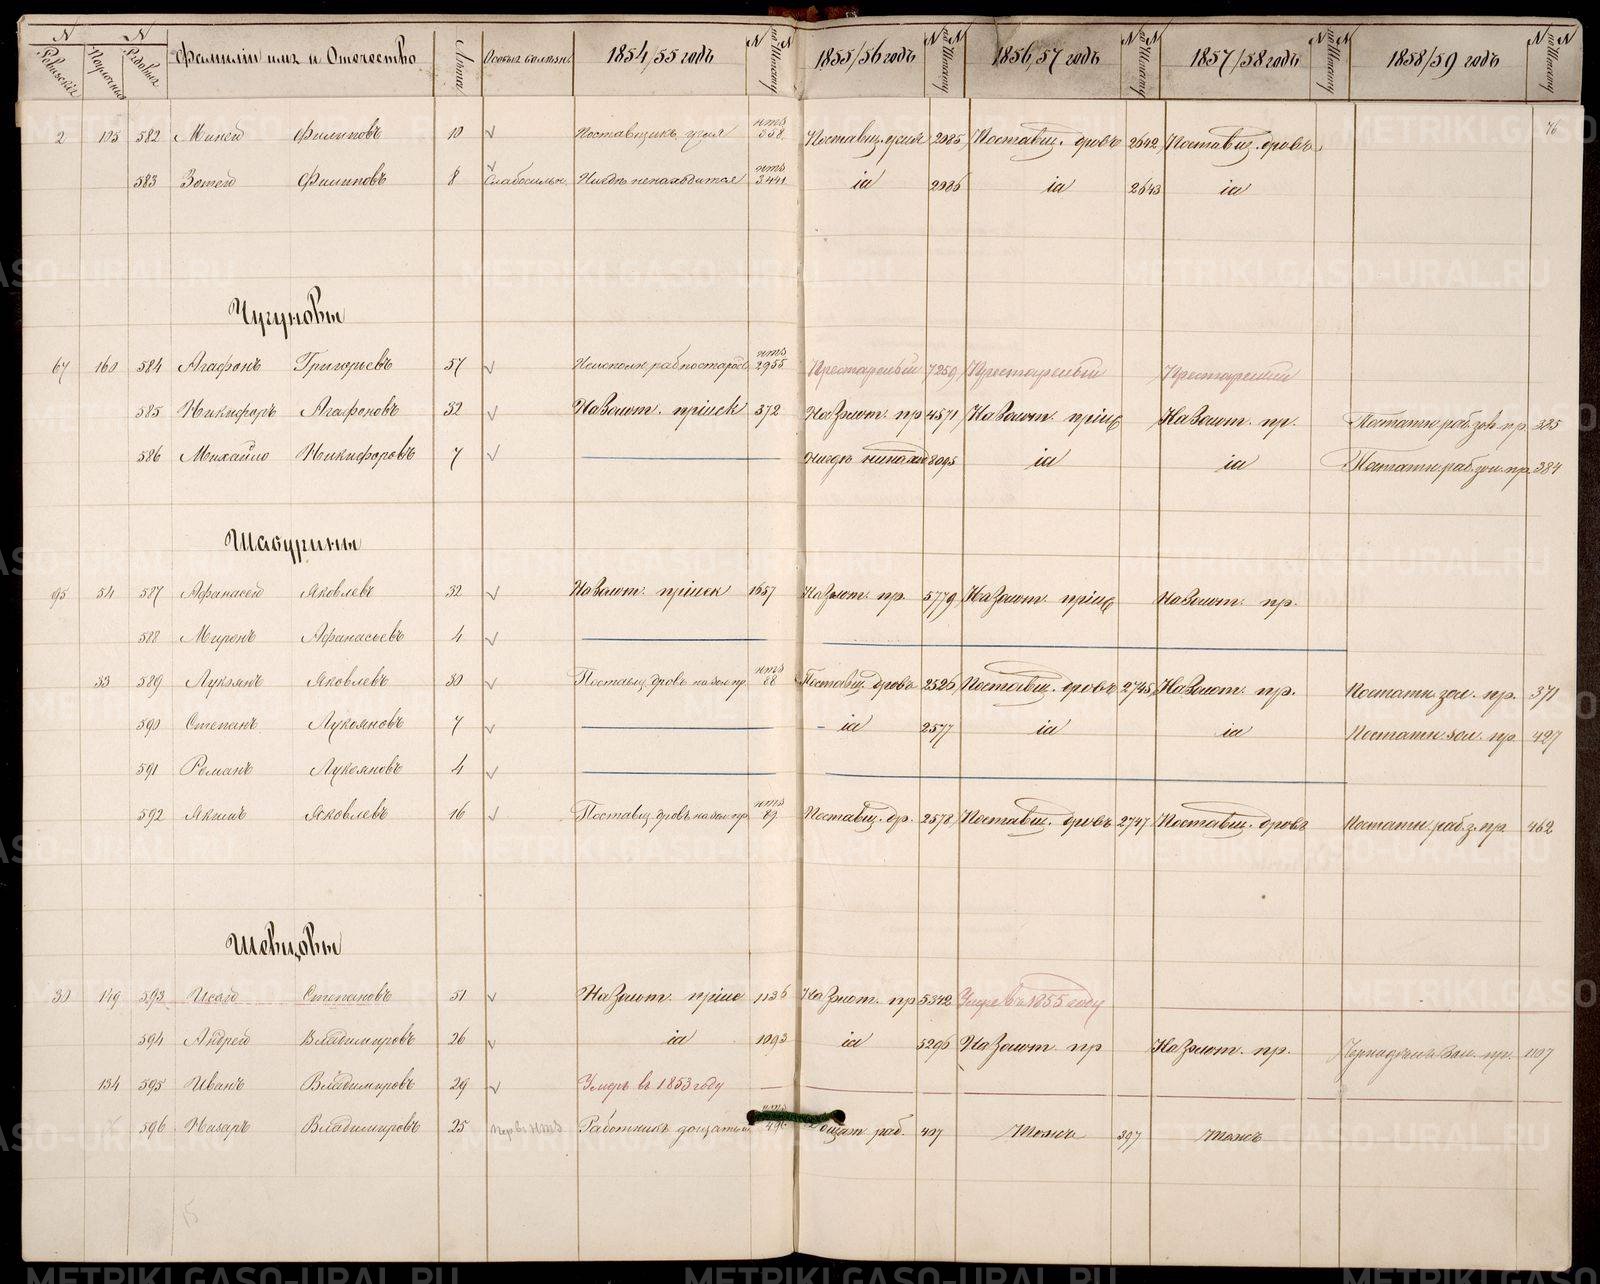 N N Фамиліи имя и Отчество Лѣта 1854/55 годъ N N 1855/56 годъ N N 1856/57 годъ N N 1857/58 годъ N N 1858/59 годъ N N
76
2 105 582 Филиповъ 10 Поставщикъ угля нтз 358 Поставщ. угля 2985 Поставщ. дровъ 2642 Поставщ. дровъ
583 Зотей Филиповъ 8 Слабосильн. Нигдѣ ненаходится нтз 3441 ia 2986 ia 2643 ia
Чугуновы
67 160 584 Агафонъ Григорьевъ 57 нтз 2955 Престарелый 7259 Престарелый Престарелый
585 Никифоръ Агафоновъ 32 На Золот. пріиск 372 На Золот. пр 4571 На Золот. пріис На Золот. пр. 385
586 Михайло Никифоровъ 7 Нигдѣ 8095 ia ia 384
Шабурины
95 54 587 Афанасей Яковлевъ 32 На Золот. пріиск 1657 На Золот. пр. 5779 На Золот. пріис На Золот. пр.
588 Миронъ Афанасьевъ 4
33 589 Лукоянъ Яковлевъ 30 Поставщ. дровъ на зол. пр. нтз 88 Поставщ. дровъ 2526 Поставщ. дровъ 2745 На Золот. пр. зол. пр. 371
590 Степанъ Лукояновъ 7 ia 2577 ia ia зол. пр. 427
591 Романъ Лукояновъ 4
592 Якимъ Яковлевъ 16 Поставщ. дровъ на зол. пр. нтз 89 Поставщ. др. 2578 Поставщ. дровъ 2747 Поставщ. дровъ раб. з. пр. 462
Шевцовы
30 149 593 Исай Степановъ 51 На Золот. пріис 1136 На Золот. пр 5342 Умре въ 1855 году
594 Андрей Владимировъ 26 ia 1093 ia 5296 На Золот. пр На Золот. пр. зол. пр. 1107
134 595 Иванъ Владимировъ 29 Умеръ въ 1853 году
596 Назаръ Владимировъ 25 Работникъ раб. 407 Тожъ 397 Тожъ
15
METRIKI.GASO-URAL.RU